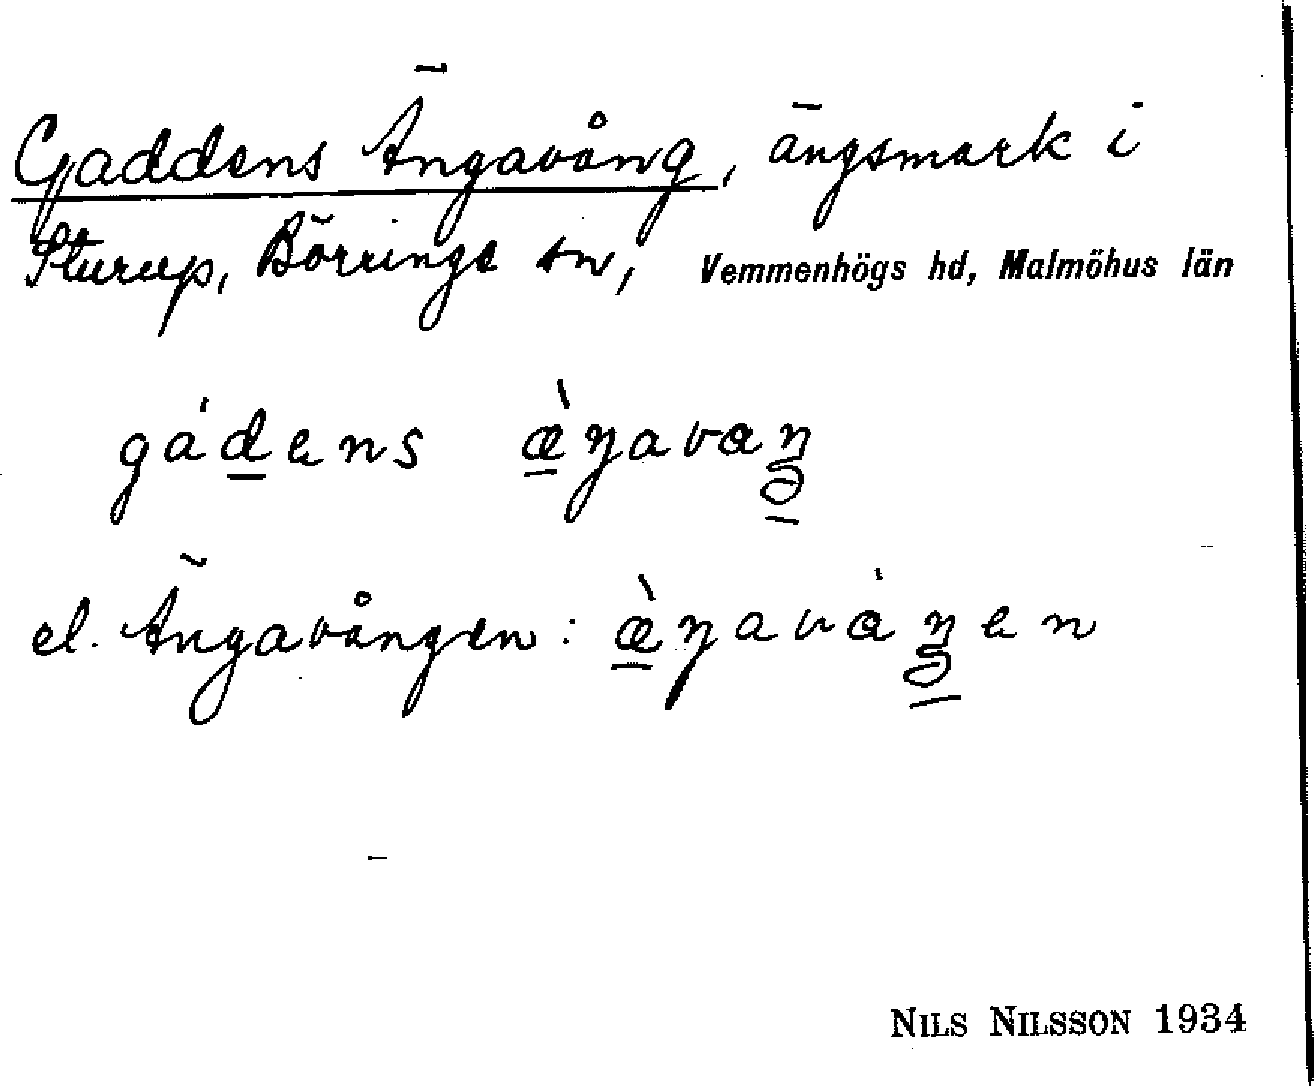 Gaddens Ängavång, ängsmark i
Sturup, Börringe sn, Vemmenhögs hd, Malmöhus län
gádens æ̀ŋavaŋ
el. Ängavången: æ̀ŋaváŋen
NILS NILSSON 1934